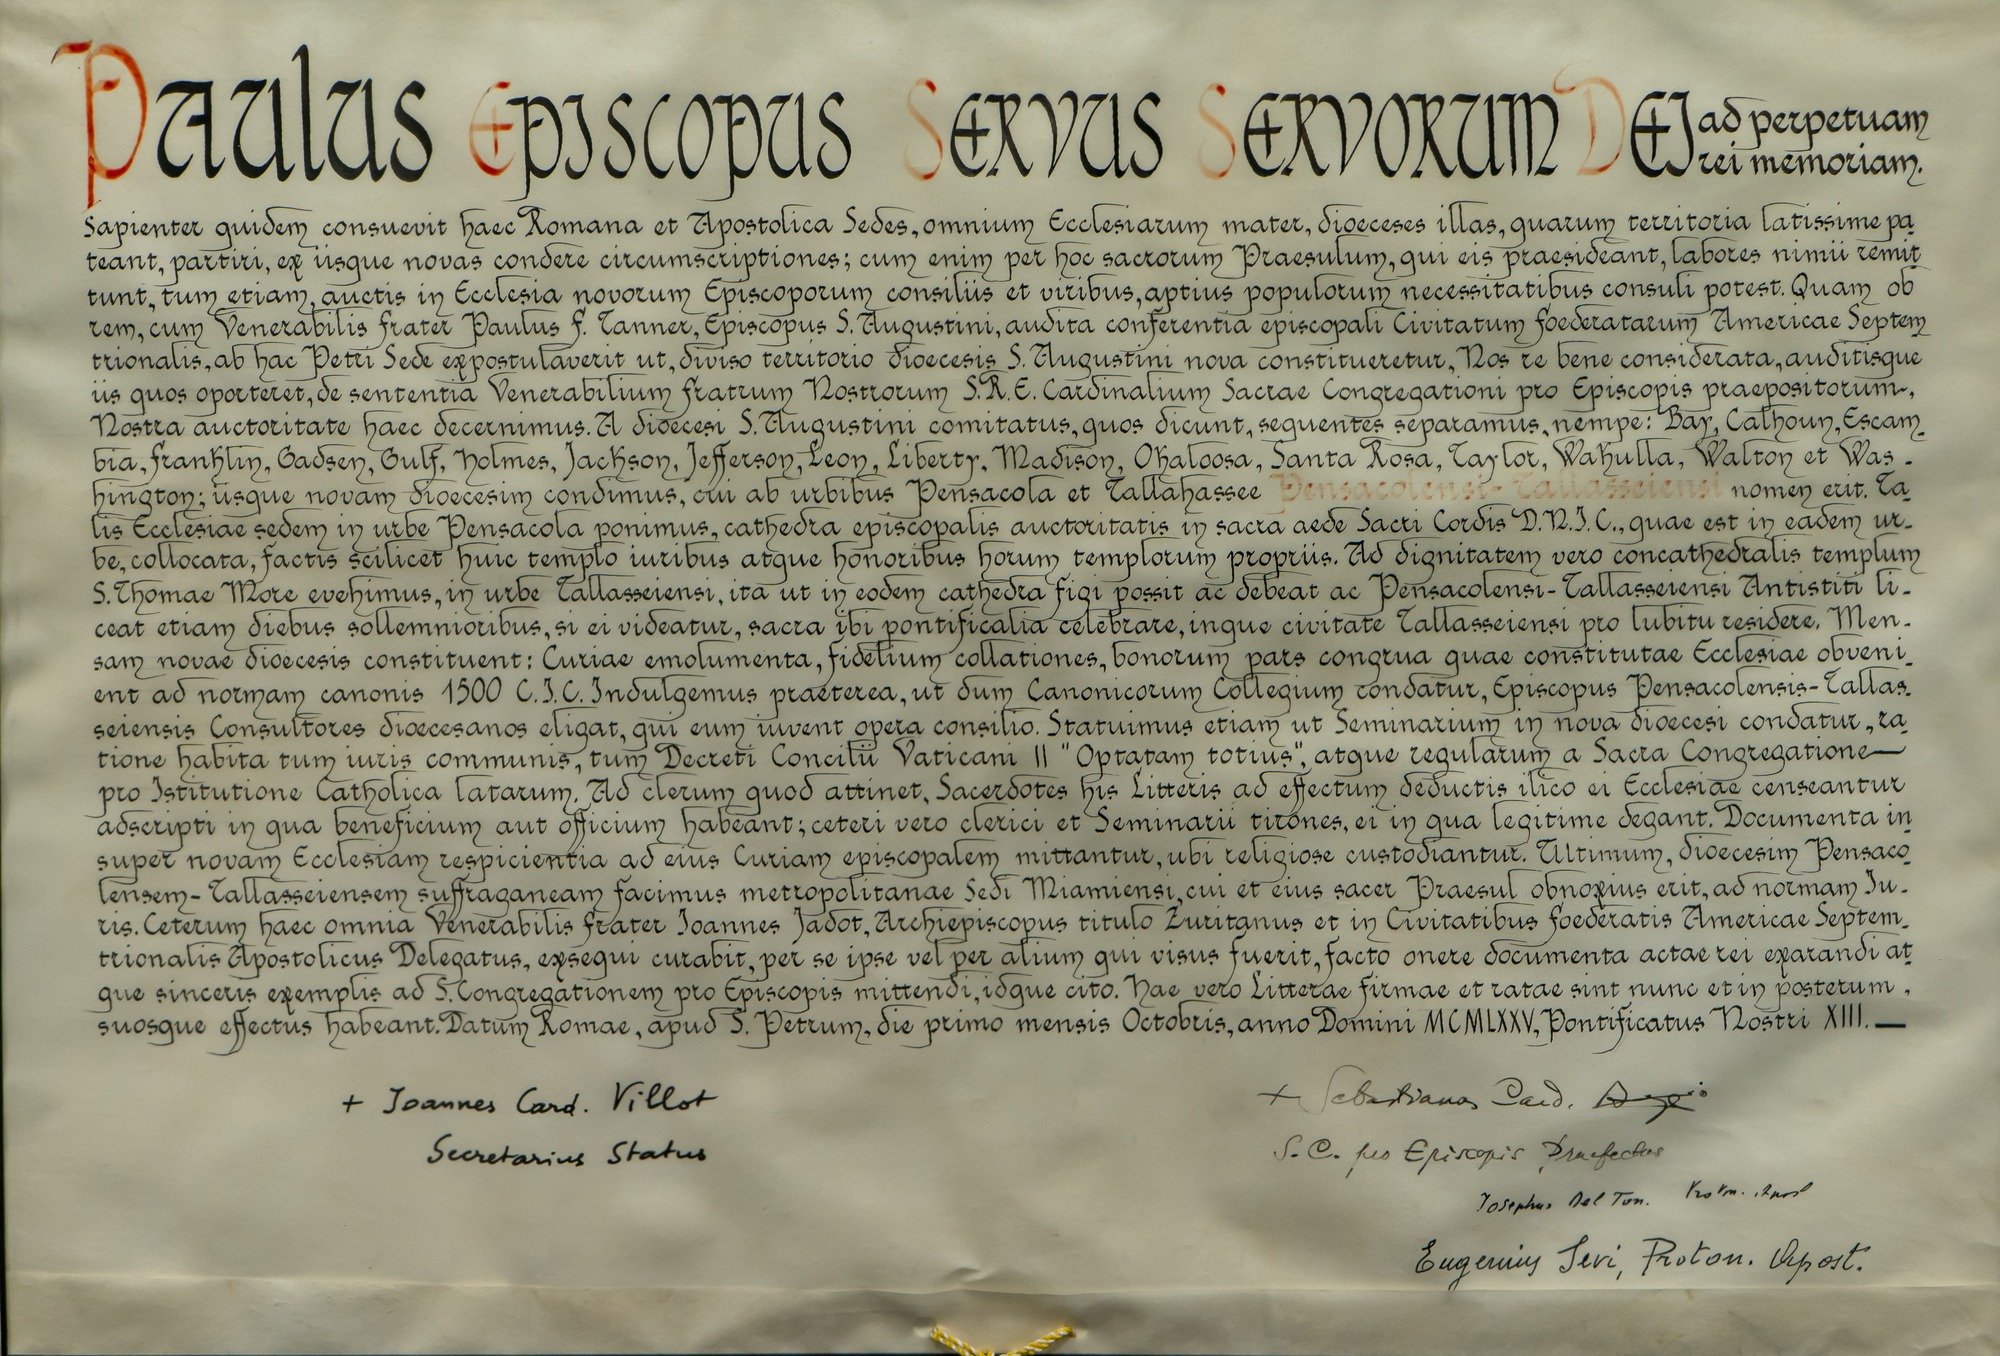 Paulus Episcopus Servus Servorum Dei ad perpetuam
rei memoriam.
Sapienter quidem consuevit haec Romana et Apostolica Sedes, omnium Ecclesiarum mater, dioeceses illas, quarum territoria latissime pa
teant, partiri, ex iisque novas condere circumscriptiones; cum enim per hoc sacrorum Praesulum, qui eis praesideant, labores nimii remit
tunt, tum etiam, auctis in Ecclesia novorum Episcoporum consiliis et viribus, aptius populorum necessitatibus consuli potest. Quam ob
rem, cum Venerabilis Frater Paulus F. Tanner, Episcopus S. Augustini, audita conferentia episcopali Civitatum Foederatarum Americae Septem
trionalis, ab hac Petri Sede expostulaverit ut, diviso territorio dioecesis S. Augustini nova constitueretur, Nos re bene considerata, auditisque
iis quos oporteret, de sententia Venerabilium Fratrum Nostrorum S.R.E. Cardinalium Sacrae Congregationi pro Episcopis praepositorum,
Nostra auctoritate haec decernimus. A dioecesi S. Augustini comitatus, quos dicunt, sequentes separamus, nempe: Bay, Calhoun, Escam
bia, Franklin, Gadsen, Gulf, Holmes, Jackson, Jefferson, Leon, Liberty, Madison, Okaloosa, Santa Rosa, Taylor, Wakulla, Walton et Was-
hington; iisque novam dioecesim condimus, cui ab urbibus Pensacola et Tallahassee Pensacolensi-Tallasseiensi nomen erit. Ta
lis Ecclesiae sedem in urbe Pensacola ponimus, cathedra episcopalis auctoritatis in sacra aede Sacri Cordis D.N.I.C., quae est in eadem ur-
be, collocata, factis scilicet huic templo iuribus atque honoribus horum templorum propriis. Ad dignitatem vero concathedralis templum
S. Thomae More evehimus, in urbe Tallasseiensi, ita ut in eodem cathedra figi possit ac debeat ac Pensacolensi-Tallasseiensi Antistiti li-
ceat etiam diebus sollemnioribus, si ei videatur, sacra ibi pontificalia celebrare, inque civitate Tallasseiensi pro lubitu residere. Men-
sam novae dioecesis constituent: Curiae emolumenta, fidelium collationes, bonorum pars congrua quae constitutae Ecclesiae obveni
ent ad normam canonis 1500 C.I.C. Indulgemus praeterea, ut dum Canonicorum Collegium condatur, Episcopus Pensacolensis-Tallas
seiensis Consultores dioecesanos eligat, qui eum iuvent opera consilio. Statuimus etiam ut Seminarium in nova dioecesi condatur, ra
tione habita tum iuris communis, tum Decreti Concilii Vaticani II "Optatam totius", atque regularum a Sacra Congregatione
pro Istitutione Catholica latarum. Ad clerum quod attinet, Sacerdotes his Litteris ad effectum deductis ilico ei Ecclesiae censeantur
adscripti in qua beneficium aut officium habeant; ceteri vero clerici et Seminarii tirones, ei in qua legitime degant. Documenta in
super novam Ecclesiam respicientia ad eius Curiam episcopalem mittantur, ubi religiose custodiantur. Ultimum, dioecesim Pensaco
lensem-Tallasseiensem suffraganeam facimus metropolitanae Sedi Miamiensi, cui et eius sacer Praesul obnoxius erit, ad normam Iu-
ris. Ceterum haec omnia Venerabilis Frater Ioannes Jadot, Archiepiscopus titulo Zuritanus et in Civitatibus Foederatis Americae Septem
trionalis Apostolicus Delegatus, exsequi curabit, per se ipse vel per alium qui visus fuerit, facto onere documenta actae rei exarandi at
que sinceris exemplis ad S. Congregationem pro Episcopis mittendi, idque cito. Hae vero Litterae firmae et ratae sint nunc et in posterum,
suosque effectus habeant. Datum Romae, apud S. Petrum, die primo mensis Octobris, anno Domini MCMLXXV, Pontificatus Nostri XIII.
+ Ioannes Card. Villot
Secretarius Status
+ Sebastianus Card. Baggio
S. C. pro Episcopis Praefectus
Iosephus Del Ton. Proton. Apost
Eugenius Sevi, Proton. Apost.